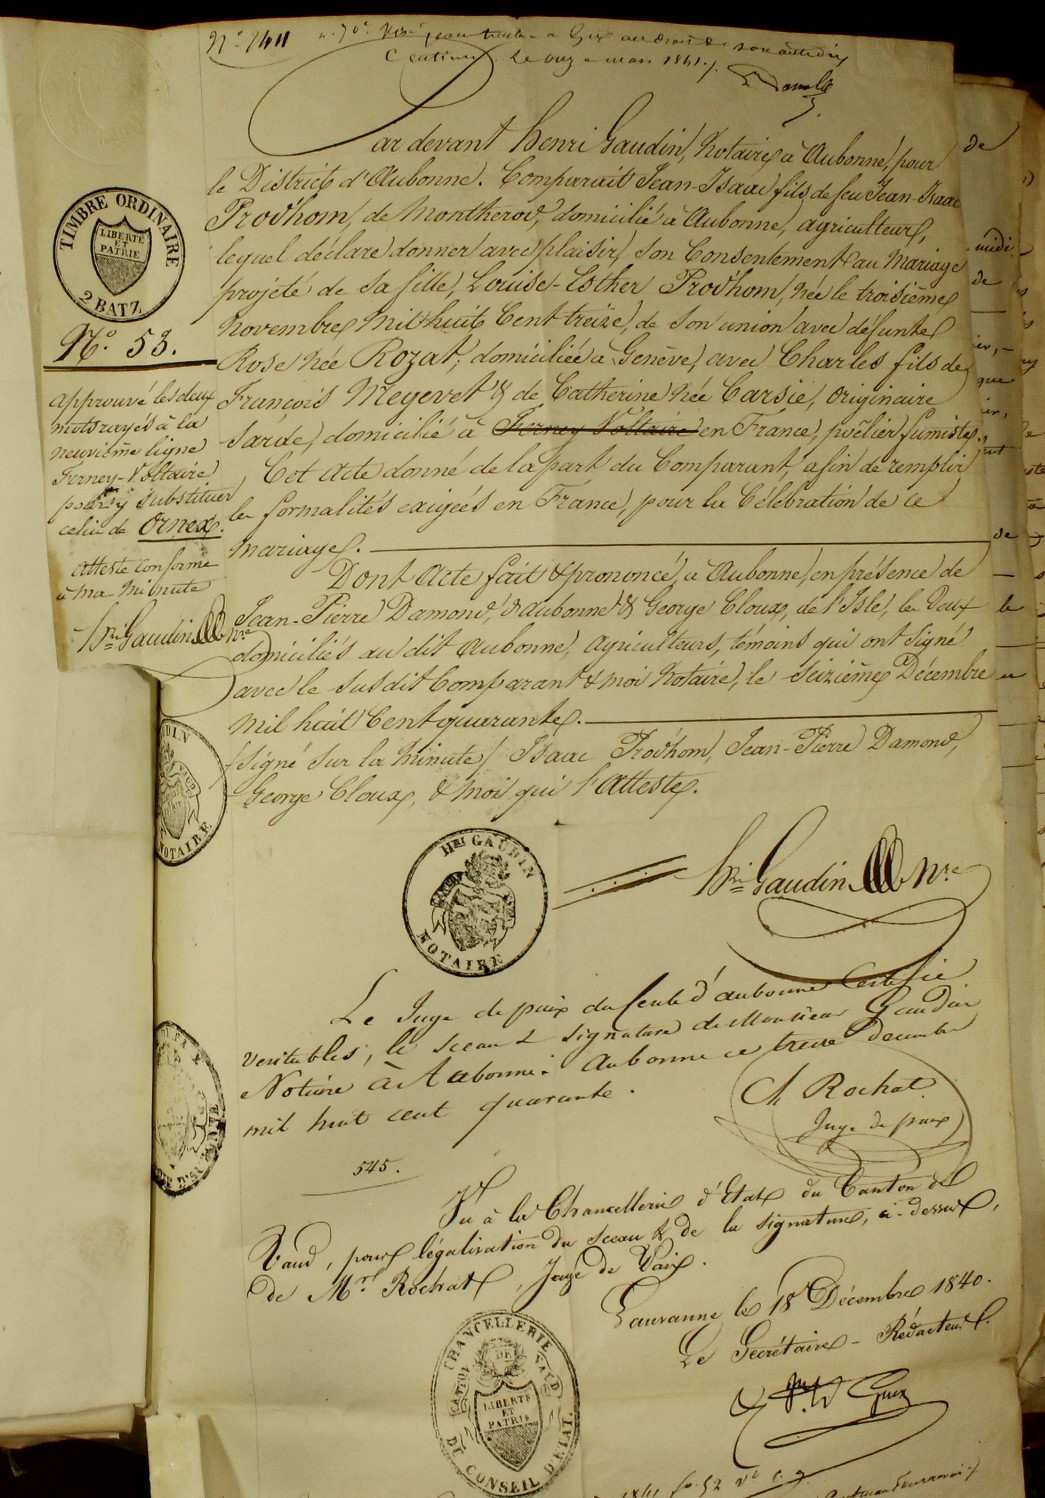 centimes Le onze mars 1841
Par devant Henri Gaudin, Notaire à Aubonne, pour
le District d'Aubonne. Comparait Jean-Isaac fils de feu Jean-Isaac
Prod'hom, de Montherod, domicilié à Aubonne, agriculteur,
lequel déclare donner avec plaisir son Consentement au Mariage
projeté de sa fille, Louise-Esther Prod'hom, née le troisième
Novembre mil huit Cent treize, de son union avec défunte
Rose née Rozat, domiciliée à Genève, avec Charles fils de
François Megevet & de Catherine née Carsié, originaire
Sarde, domicilié à Ferney Voltaire en France, poëlier fumiste.
Cet acte donné de la part du Comparant, afin de remplir
les formalités exigées en France, pour la Célébration de ce
mariage.
Dont Acte fait & prononcé, à Aubonne, en présence de
Jean-Pierre Damond, d'Aubonne, & George Cloux, de l'Isle, les deux
domiciliés au dit Aubonne, agriculteurs, témoins qui ont signé
avec le susdit Comparant & moi Notaire, le seizième Décembre
mil huit Cent quarante.
/signé sur la minute/ Isaac Prod'hom, Jean-Pierre Damond,
George Cloux, & moi qui l'atteste.
Hri Gaudin Nre
TIMBRE ORDINAIRE
LIBERTÉ
ET
PATRIE
2 BATZ
No. 53.
approuvé les deux
mots rayés à la
neuvième ligne
Ferney-Voltaire
pour y substituer
celui de Ornex.
atteste conforme
à ma minute
Hri Gaudin Nre
NOTAIRE
HRI GAUDIN
NOTAIRE
Le Juge de paix du Cercle d'aubonne Certifie
veritables, le sceau & signature de Monsieur Gaudin
Notaire à Aubonne. Aubonne ce decembre
mil huit cent quarante.
Ch Rochat
Juge de paix
545.
Vu à la Chancellerie d'Etat du Canton de
Vaud, pour légalisation du sceau & de la signature, ci-dessus,
de Mr. Rochat, Juge de Paix.
Lausanne le 18 Décembre 1840.
Le Secrétaire-Rédacteur.
CHANCELLERIE
DU CONSEIL D'ETAT.
CANTON DE VAUD
LIBERTÉ
ET
PATRIE